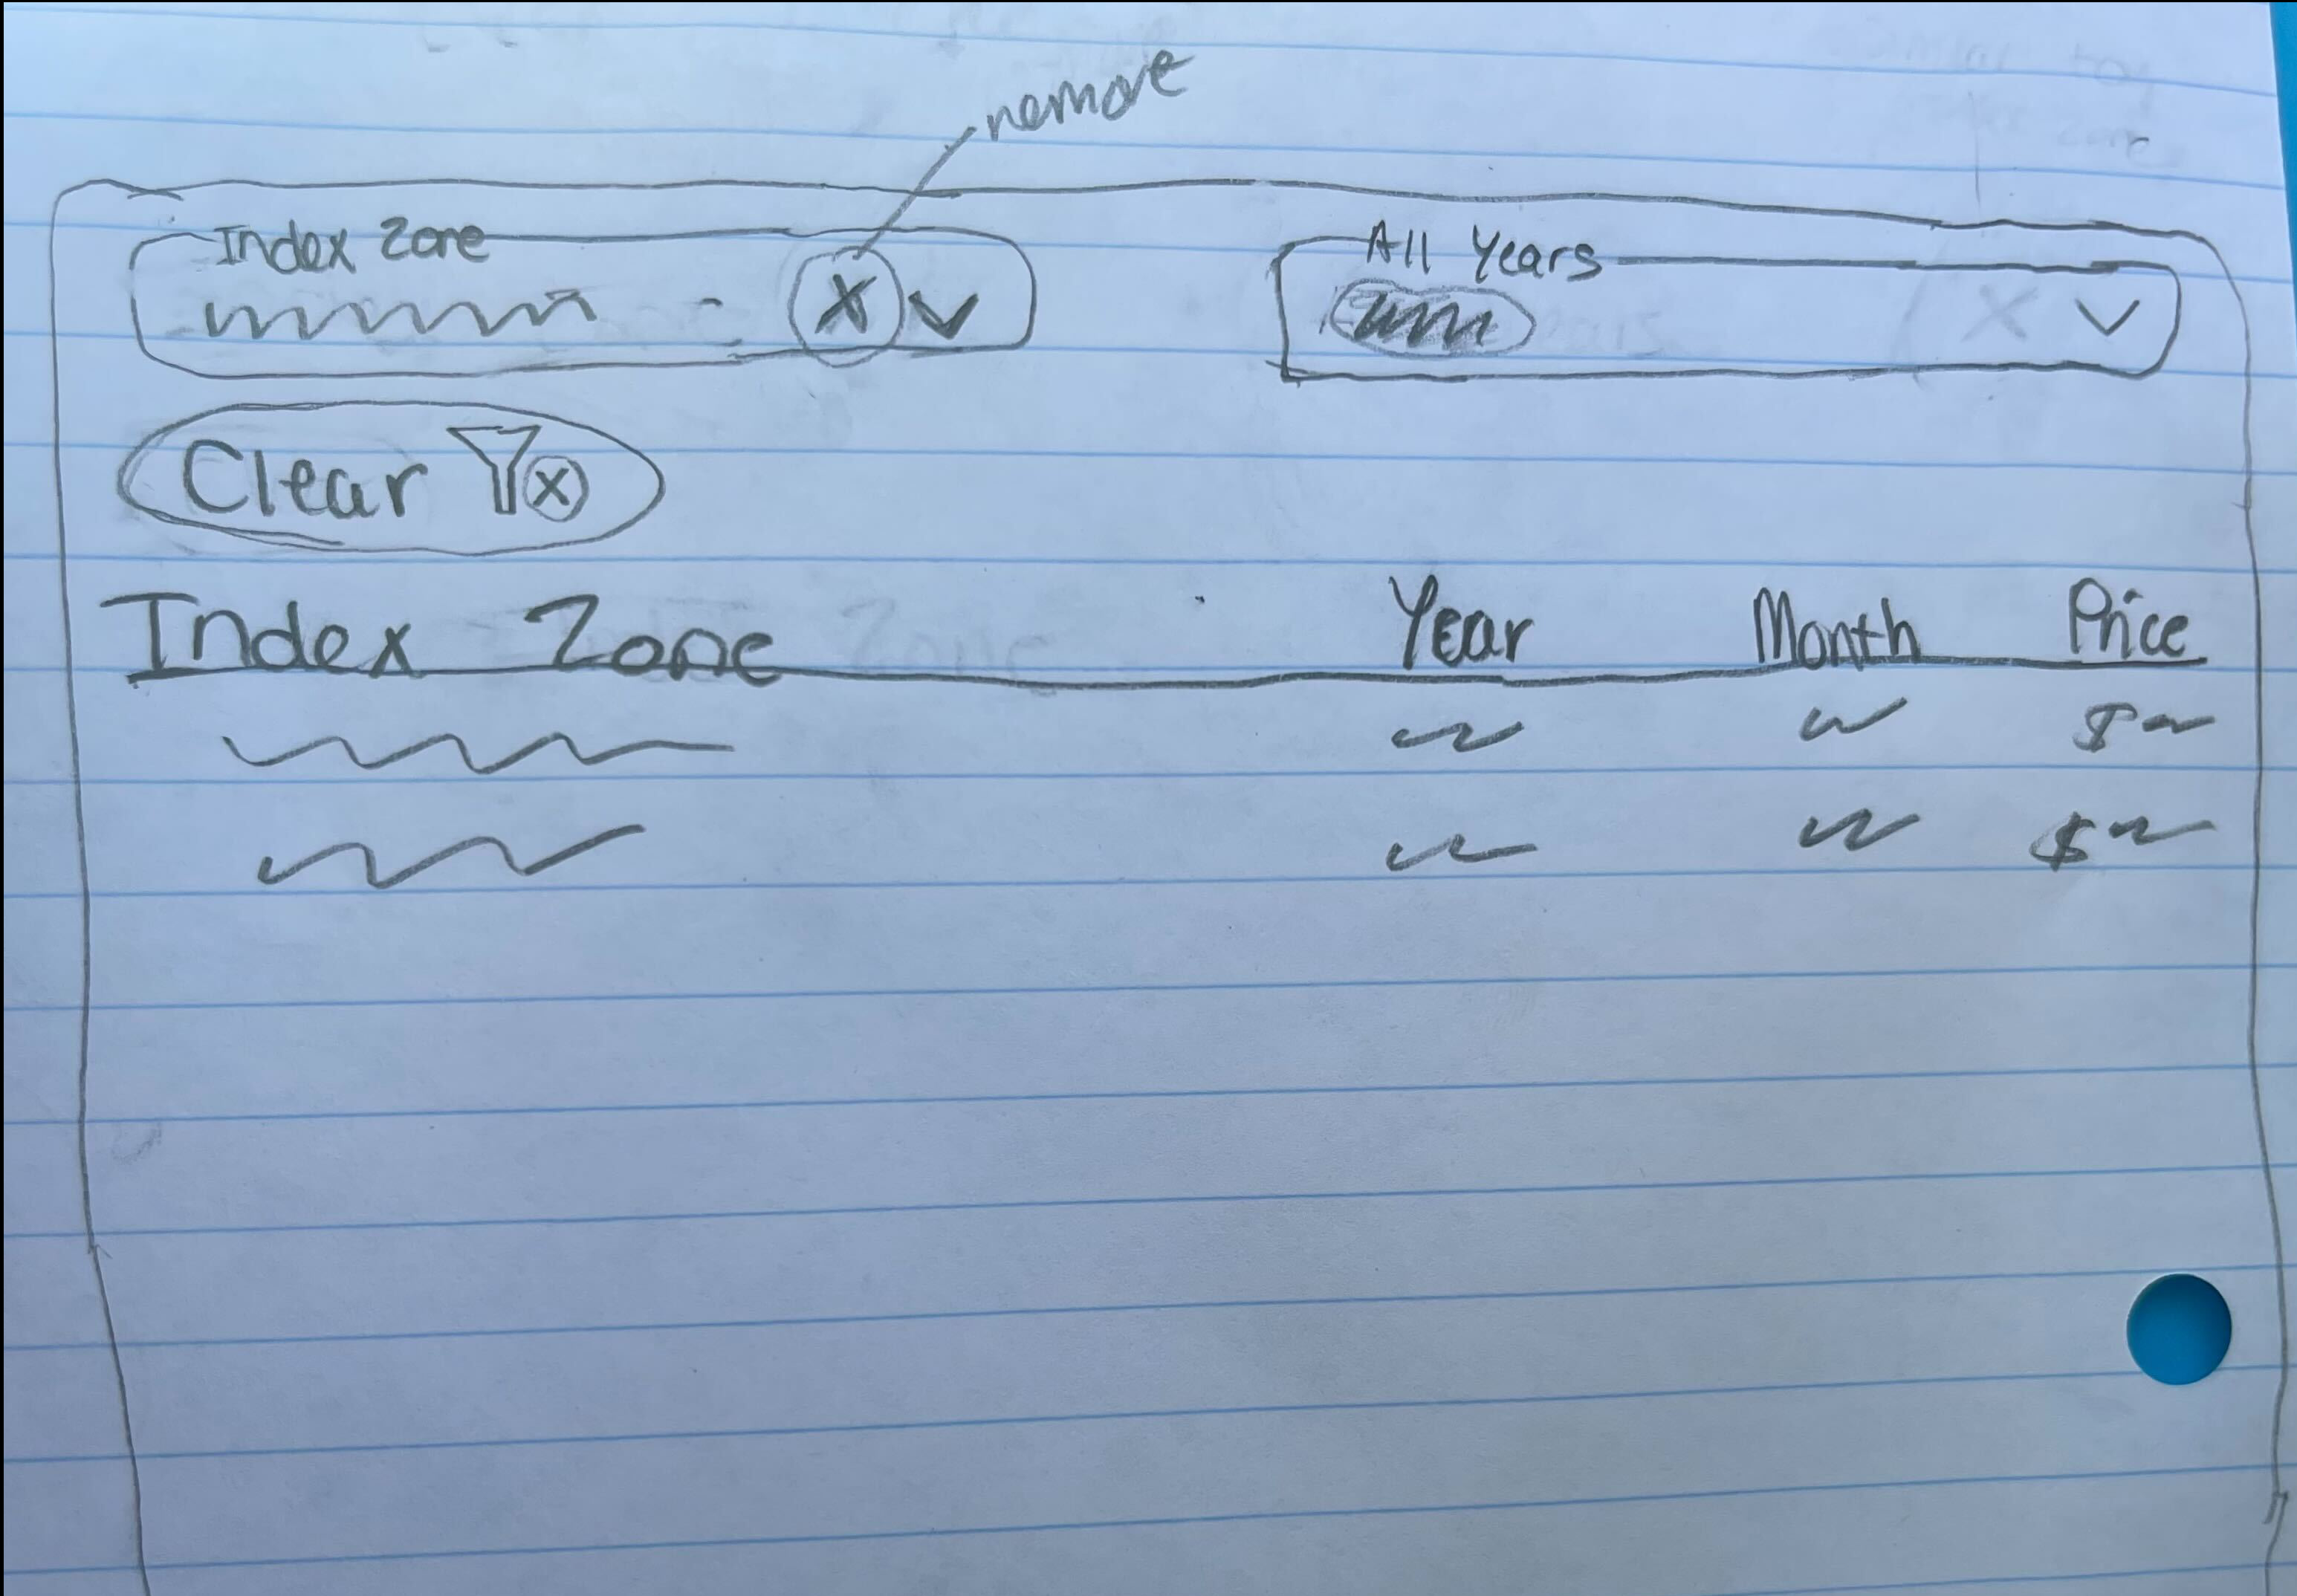 remove
Index Zone
X
All Years
X
Clear
X
Index Zone Year Month Price
$
$